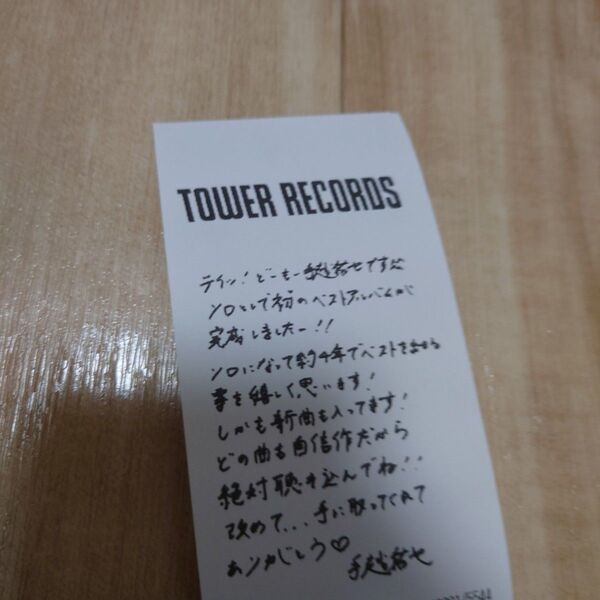 TOWER RECORDS
テイッ!どーもー手越祐也です^^
ソロとして初のベストアルバムが
完成しましたー!!
ソロになって約4年でベストを出せる
事を嬉しく思います!
しかも新曲も入ってます!
どの曲も自信作だから
絶対聴き込んでね!!
改めて...手に取ってくれて
ありがとう♡
手越祐也